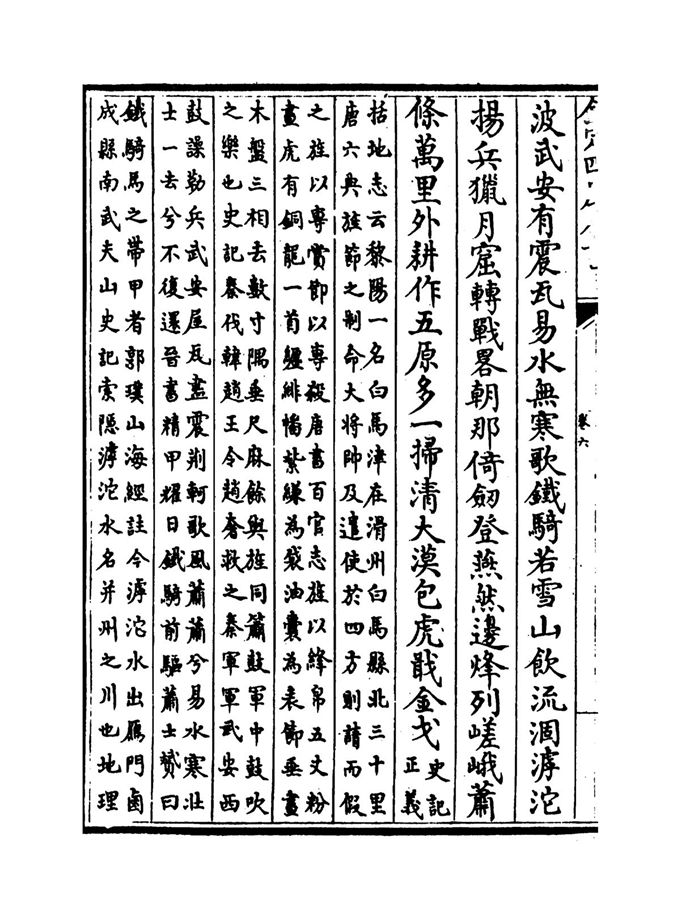 卷六
波武安有震瓦易水無寒歌鐵騎若雪山飲流涸滹沱
揚兵獵月窟轉戰畧朝那倚劒登燕然邊烽列嵯峨蕭
條萬里外耕作五原多一掃清大漠包虎戢金戈史記
正義
括地志云黎陽一名白馬津在滑州白馬縣北三十里
唐六典旌節之制命大將帥及遣使於四方則請而假
之旌以專賞節以專殺唐書百官志旌以絳帛五丈粉
畫虎有銅龍一首纒緋幡紫縑為袋油囊為表節垂畫
木盤三相去數寸隅垂尺麻餘與旌同簫鼓軍中鼓吹
之樂也史記秦伐韓趙王令趙奢救之秦軍軍武安西
鼓譟勒兵武安屋瓦盡震荆軻歌風蕭蕭兮易水寒壯
士一去兮不復還晉書精甲耀日鐵騎前驅蕭士贇曰
鐵騎馬之帶甲者郭璞山海經註今滹沱水出雁門鹵
成縣南武夫山史記索隱滹沱水名并州之川也地理